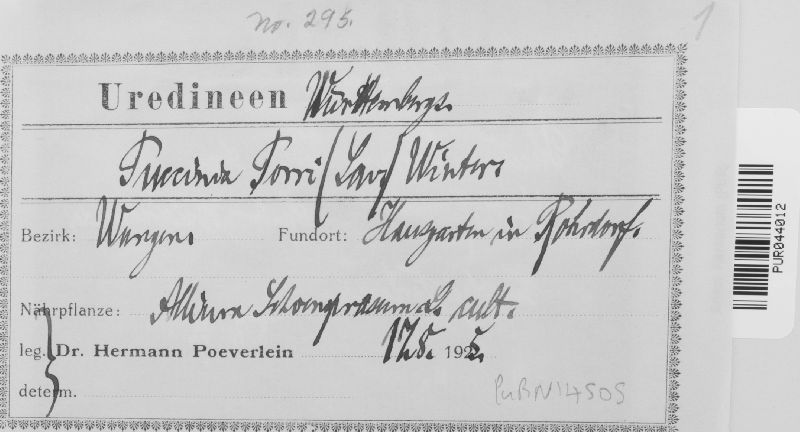 No. 295.
1
Uredineen Württembergs.
Puccinia Porri (Sow) Winter.
Bezirk: Wangen. Fundort: Hausgarten in Rohrdorf.
Nährpflanze: Allium Schoenoprasum L. cult.
leg. Dr. Hermann Poeverlein 17.8. 1925.
determ.
PUR N14505
PUR044012